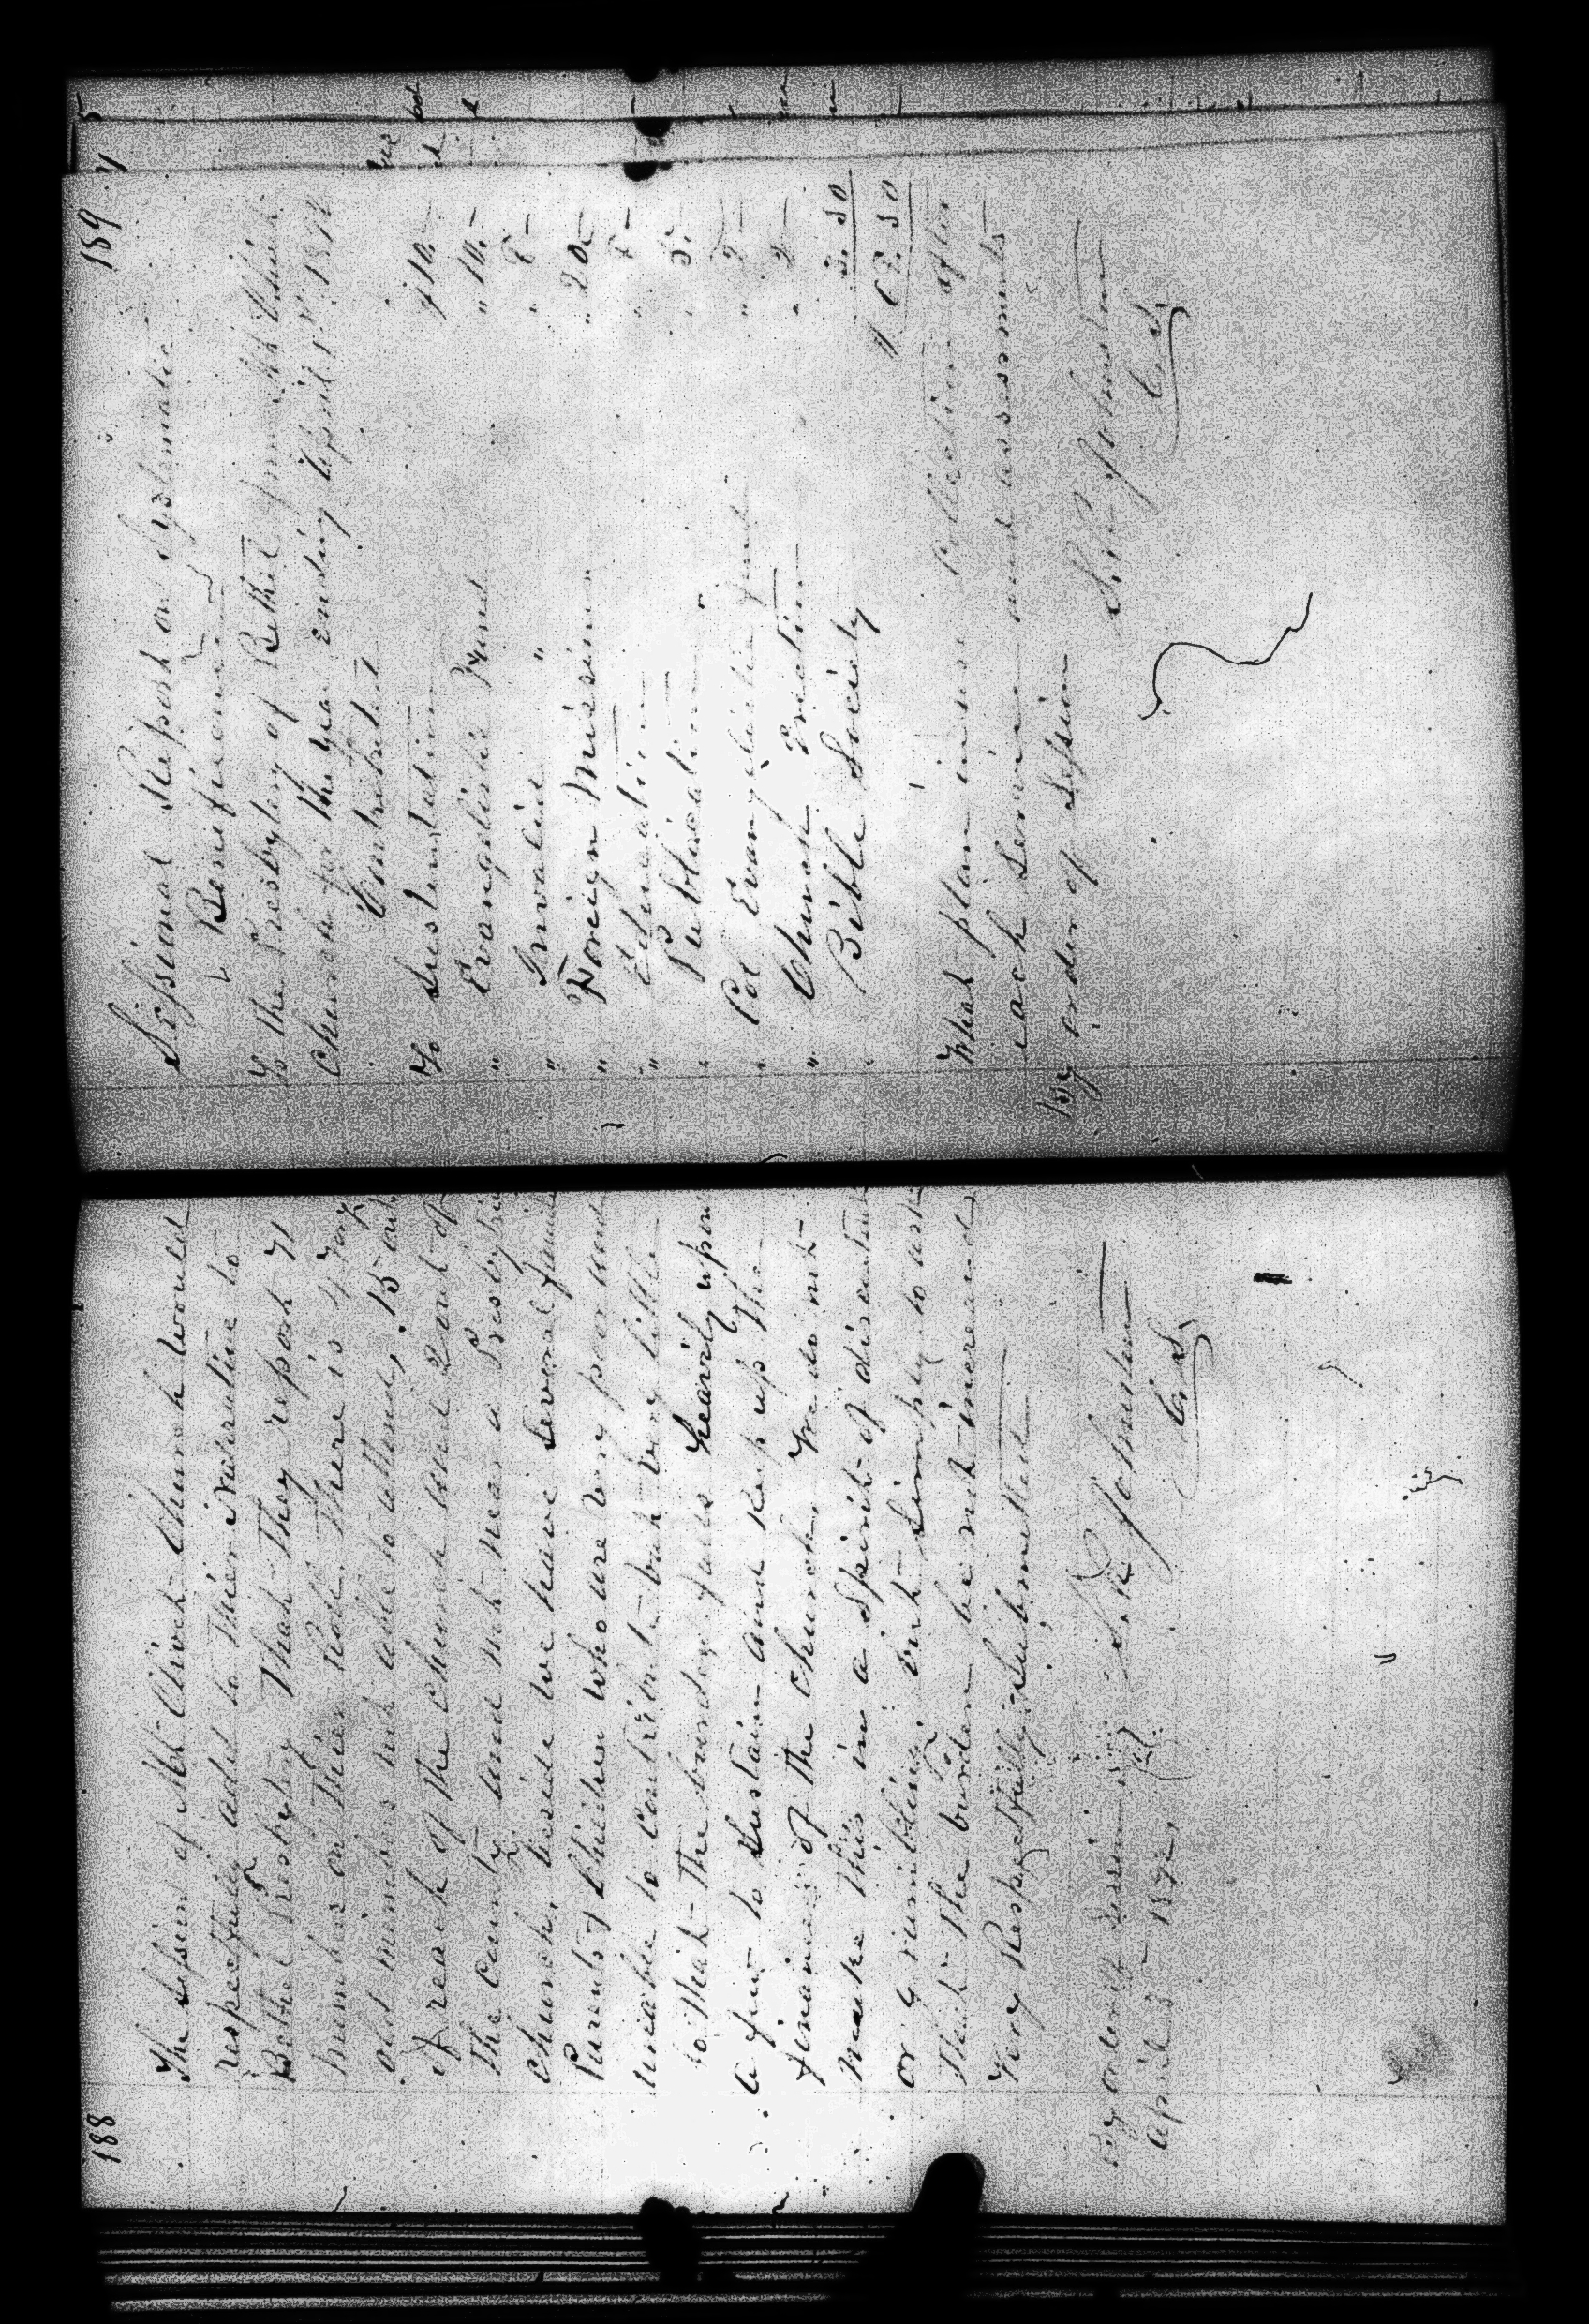 188
The Session of Mt Olivet Church would
respectfully add to Their Narrative to
Bethel Presbytery That They report 71
numbers on Their Roll. There is 4 very
old members not able to attend, 15 out
of reach of the church and 2 out of
The County and not near a Presbyt
church, beside we have several famil
Parents & Children who are very poor and
unable to contribute but very little
so that The burden falls heavily upon
a few to sustain and keep up The
finances of the church. We do not
make This in a spirit of discontent
or grumbling but simply to ask
That The burden be not increased
Very Respectfully Submitted
By order of Session
April 1892, S. R. Johnston
C. S.
189
Sessional Report on Systematic
Beneficence
To The Presbytery of Bethel from Mt Olivet
Church for The year ending April 1st 1892
Contributed
To Sustentation $10.—
" Evangelistic Fund " 10.—
" Invalid " " 8—
" Foreign Missions " 20—
" Education " 8—
" Publication 5.
" Col Evangelistic fund " 2—
" Church Erection " 2—
Bible Society 3.50
$68.50
What plan in use Collection after
each service and assessments—
By order of Session
S. R. Johnston
C. S.